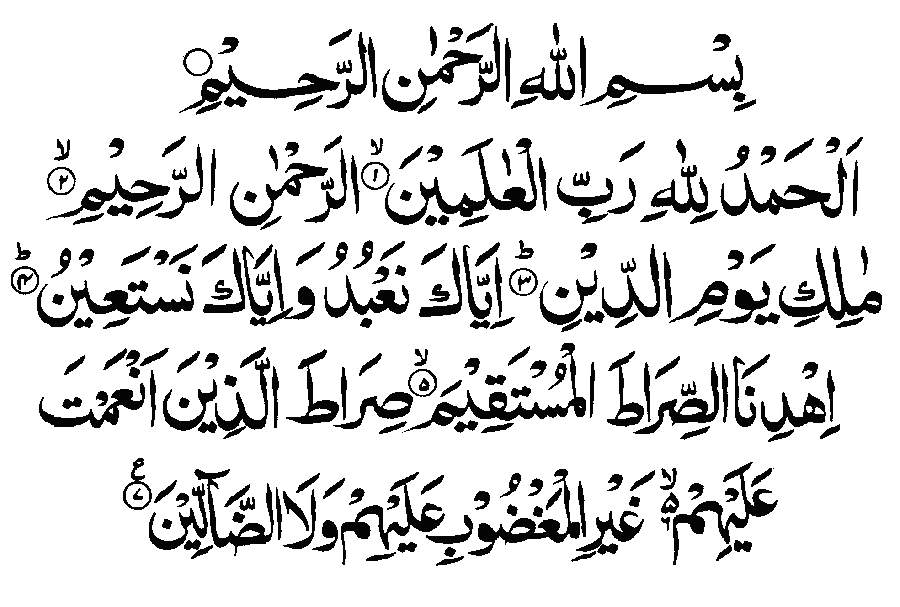 بِسْمِ اللهِ الرَّحْمٰنِ الرَّحِيْمِ ○
اَلْحَمْدُ لِلّٰهِ رَبِّ الْعٰلَمِيْنَ ۙ﴿۱﴾ الرَّحْمٰنِ الرَّحِيْمِ ۙ﴿۲﴾
مٰلِكِ يَوْمِ الدِّيْنِ ؕ﴿۳﴾ اِيَّاكَ نَعْبُدُ وَاِيَّاكَ نَسْتَعِيْنُ ؕ﴿۴﴾
اِهْدِنَا الصِّرَاطَ الْمُسْتَقِيْمَ ۙ﴿۵﴾ صِرَاطَ الَّذِيْنَ اَنْعَمْتَ
عَلَيْهِمْ ۙ۵ ۶ غَيْرِ الْمَغْضُوْبِ عَلَيْهِمْ وَلَا الضَّآلِّيْنَ ﴿۷﴾ ع